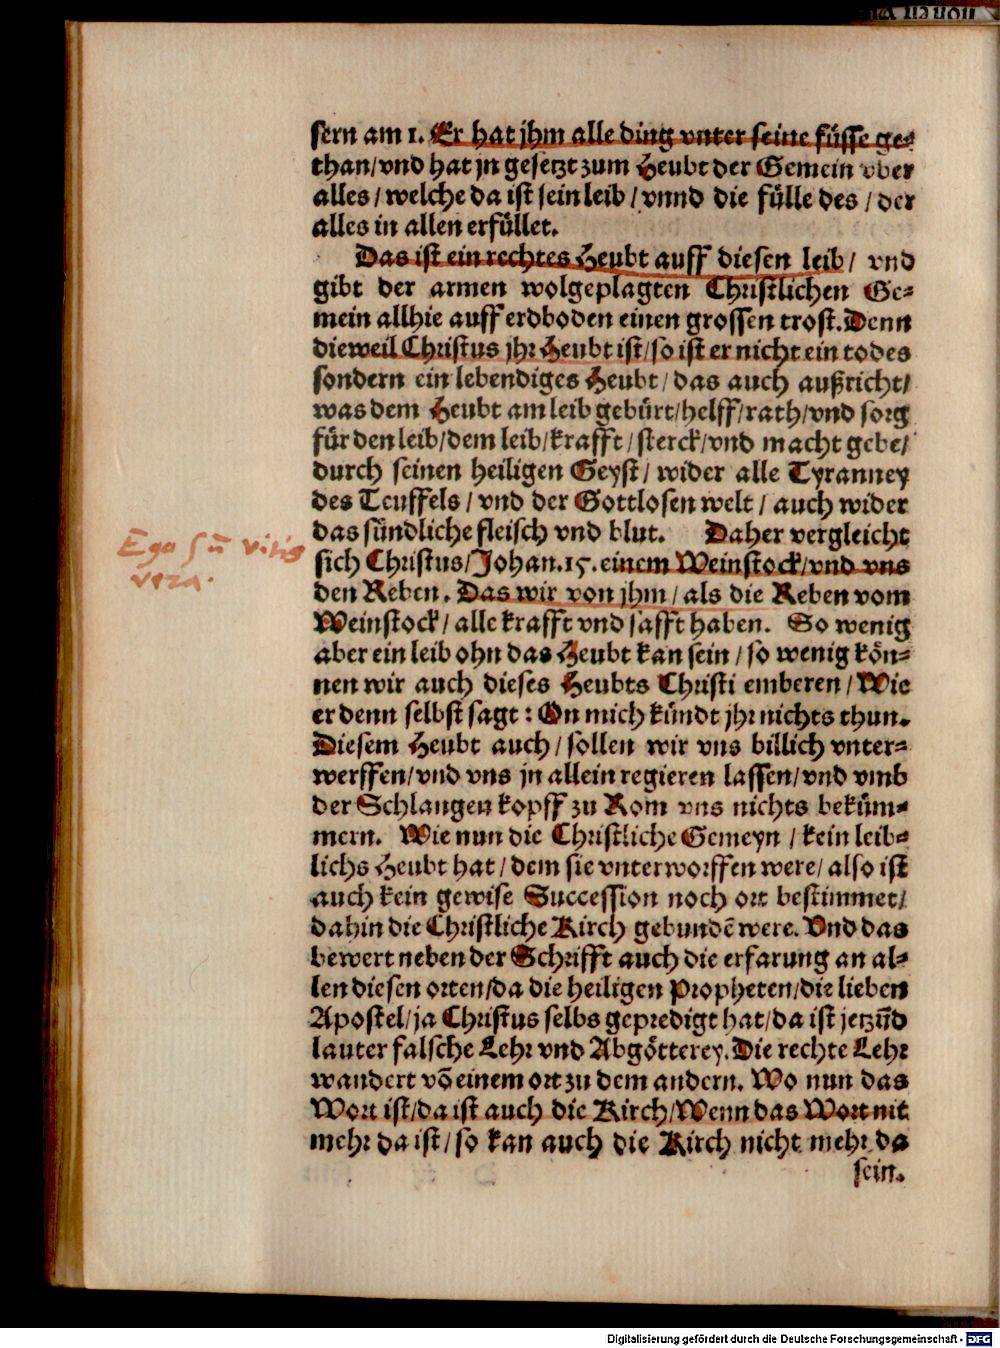 sern am 1. Er hat jhm alle ding vnter seine füsse ge-
than/vnd hat jn gesetzt zum Heubt der Gemein vber
alles/welche da ist sein leib/vnnd die fülle des/der
alles in allen erfüllet.
Das ist ein rechtes Heubt auff diesen leib/ vnd
gibt der armen wolgeplagten Christlichen Ge-
mein allhie auff erdboden einen grossen trost. Denn
dieweil Christus jhr Heubt ist/so ist er nicht ein todes
sondern ein lebendiges Heubt/das auch außricht/
was dem Heubt am leib gebürt/helff/rath/vnd sorg
für den leib/dem leib/krafft/sterck/vnd macht gebe/
durch seinen heiligen Geyst/wider alle Tyranney
des Teuffels/vnd der Gottlosen welt/auch wider
das sündliche fleisch vnd blut. Daher vergleicht
Ego sū vitis
vera.
sich Christus/Johan.15. einem Weinstock/vnd vns
den Reben. Das wir von jhm/als die Reben vom
Weinstock/alle krafft vnd safft haben. So wenig
aber ein leib ohn das Heubt kan sein/so wenig kön-
nen wir auch dieses Heubts Christi emberen/Wie
er denn selbst sagt: On mich kündt jhr nichts thun.
Diesem Heubt auch/sollen wir vns billich vnter-
werffen/vnd vns jn allein regieren lassen/vnd vmb
der Schlangen kopff zu Rom vns nichts beküm-
mern. Wie nun die Christliche Gemeyn/kein leib-
lichs Heubt hat/dem sie vnterworffen were/also ist
auch kein gewise Succession noch ort bestimmet/
dahin die Christliche Kirch gebundē were. Vnd das
bewert neben der Schrifft auch die erfarung an al-
len diesen orten/da die heiligen Propheten/die lieben
Apostel/ja Christus selbs gepredigt hat/da ist jetzūd
lauter falsche Lehr vnd Abgötterey. Die rechte Lehr
wandert vō einem ort zu dem andern. Wo nun das
Wort ist/da ist auch die Kirch/Wenn das Wort nit
mehr da ist/so kan auch die Kirch nicht mehr da
sein.
Digitalisierung gefördert durch die Deutsche Forschungsgemeinschaft - DFG